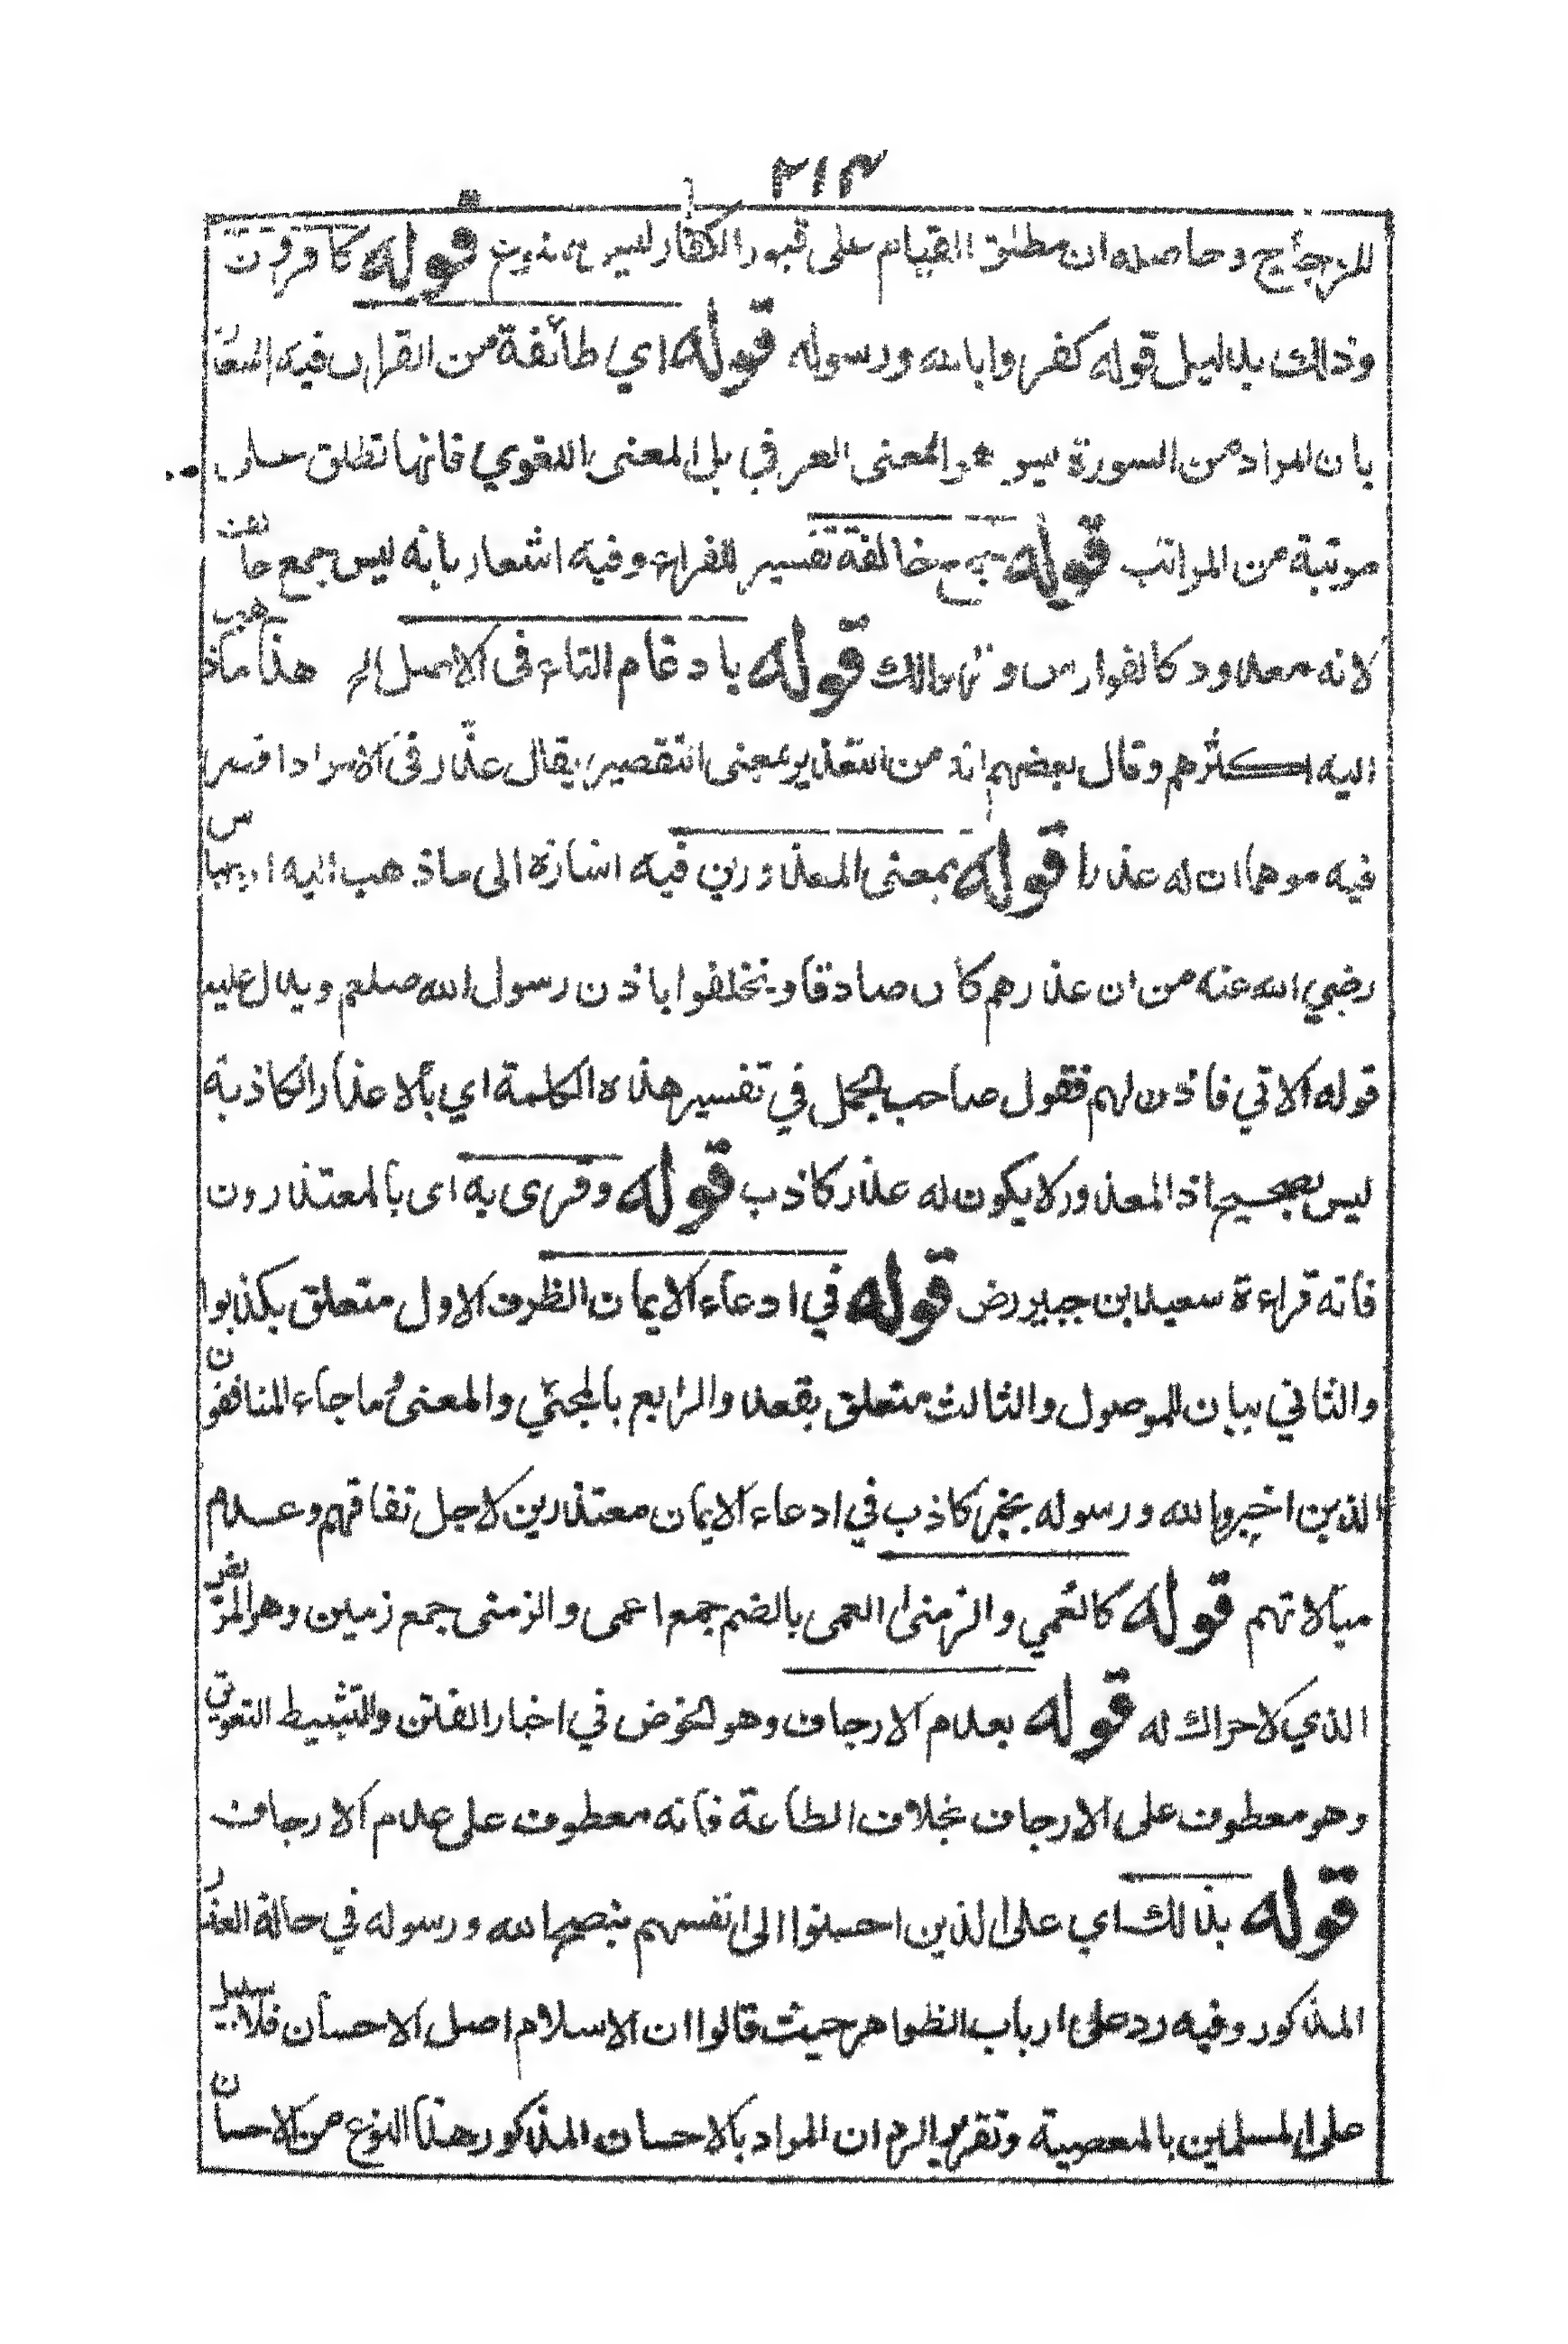 ٢١٣
للزجاج وحاصله ان مطلق القيام على قبور الكفار ليس بممنوع قوله كافرون
وذالك بدليل قوله كفروا بالله ورسوله قوله اي طائفة من القران فيه اشعا
بان المراد من السورة ليس هو المعنى العرفي بل المعنى اللغوي فانها تطلق على
مرتبة من المراتب قوله جمع خالفة تفسير للفراء وفيه اشعار بانه ليس جمع خالف
لانه معدود كالفوارس و قوله بادغام التاء فى الاصل الى هذا ماذهب
اليه اكثرهم وقال بعضهم انه من التعذير بمعنى التقصير يقال عذر فى الامر اذا قصر
فيه موهما ان له عذرا قوله بمعنى المعذورين فيه اشارة الى ماذهب اليه ابن عباس
رضي الله عنه من ان عذرهم كان صادقا وتخلفوا باذن رسول الله صلعم ويدل عليه
قوله الاتي فاذن لهم فقول صاحب الجمل في تفسير هذه الكلمة اي بالاعذار الكاذبة
ليس بصحيح اذ المعذور لا يكون له عذر كاذب قوله وقرى به اى بالمعتذرون
فانه قراءة سعيد ابن جبير رض قوله في ادعاء الايمان الظرف الاول متعلق بكذبوا
والثاني بيان للموصول والثالث متعلق بقعد والرابع بالمجئي والمعنى ماجاء المنافقون
الذين اخبروا الله ورسوله بخبر كاذب في ادعاء الايمان معتذرين لاجل نفاقهم وعدم
مبالاتهم قوله كالعمي والزمنى العمى بالضم جمع اعمى والزمنى جمع زمين وهو المريض
الذي لا حراك له قوله بعدم الارجاف وهو الخوض في اخبار الفتن والتثبيط التعويق
وهو معطوف على الارجاف بخلاف الطاعة فانه معطوف على عدم الارجاف
قوله بذالك اي على الذين احسنوا الى انفسهم بنصحها لله ورسوله في حالة العذر
المذكور وفيه رد على ارباب الظواهر حيث قالوا ان الاسلام اصل الاحسان فلا سبيل
على المسلمين بالمعصية وتقرير الرد ان المراد بالاحسان المذكور هذا النوع من الاحسان